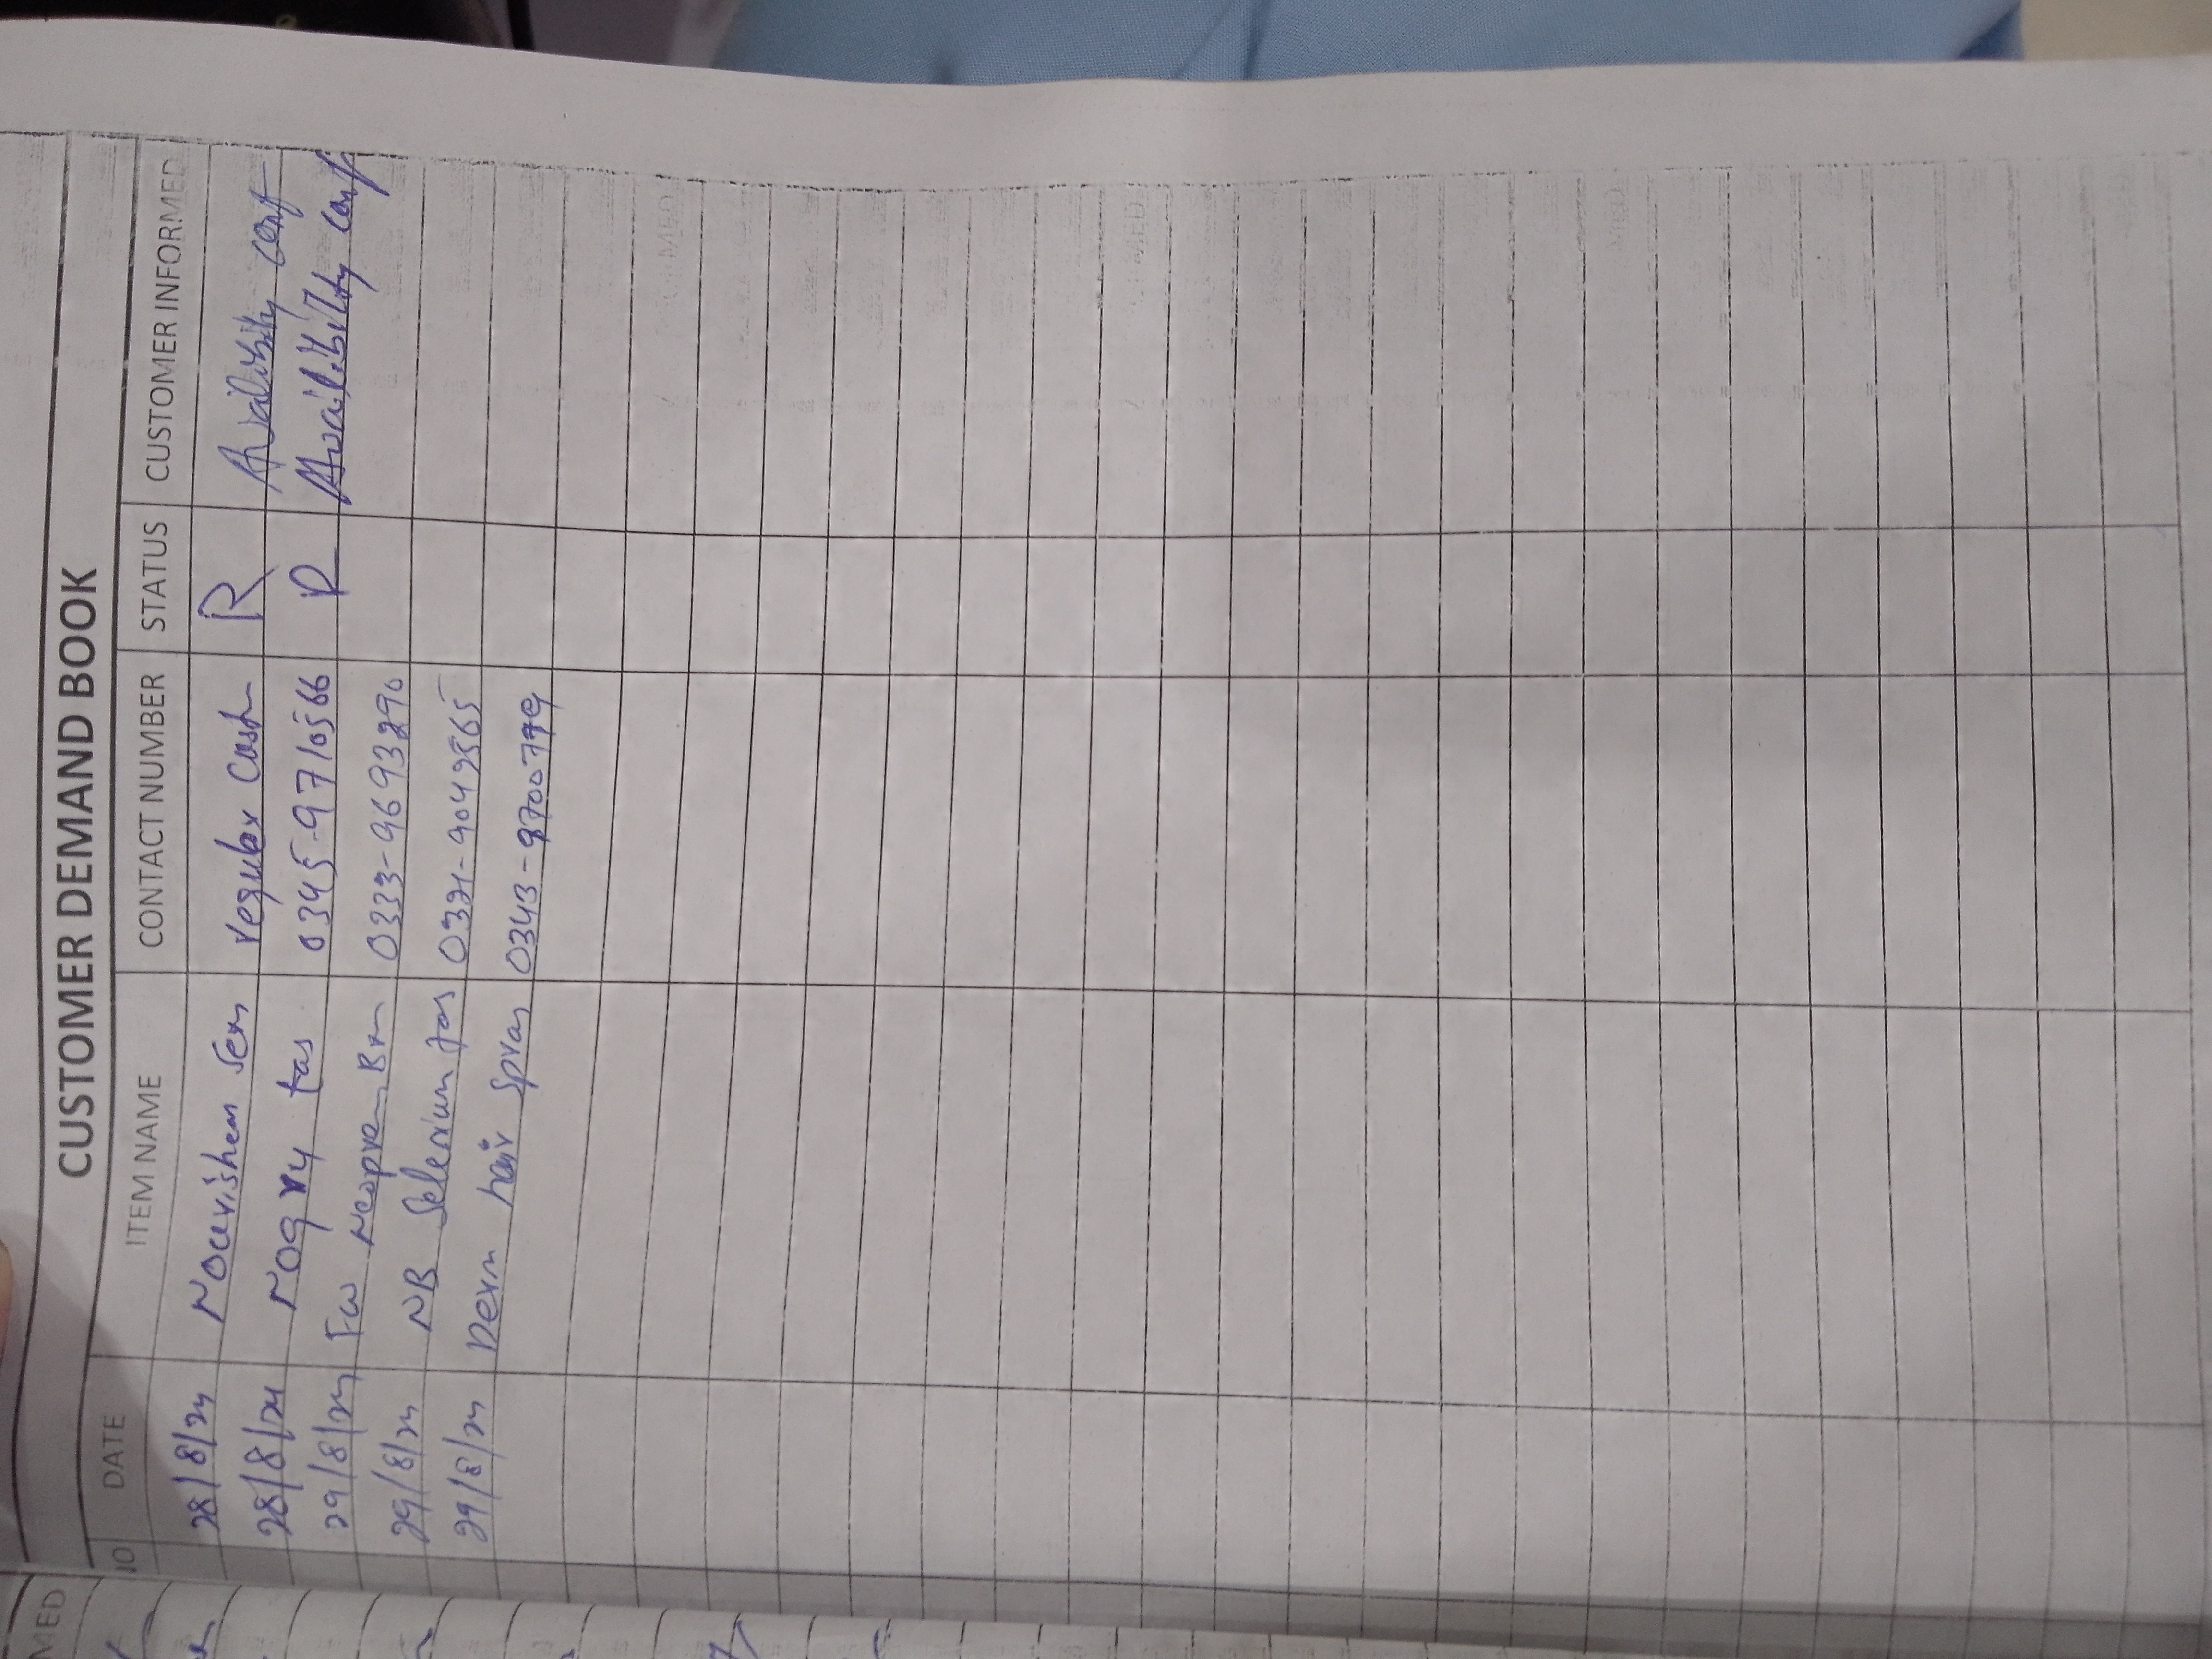 CUSTOMER DEMAND BOOK
NO DATE ITEM NAME CONTACT NUMBER STATUS CUSTOMER INFORMED
28/8/24 Nourishem Sem regular Cust R Availibity conf
28/8/24 Nogry tas 0345-9710566 R Availibility conf
29/8/24 Fw Neopren Brn 0333-9693290
29/8/24 NB Selenium 0321-9049565
29/8/24 Derm hair Spray 0343-9700779
MED